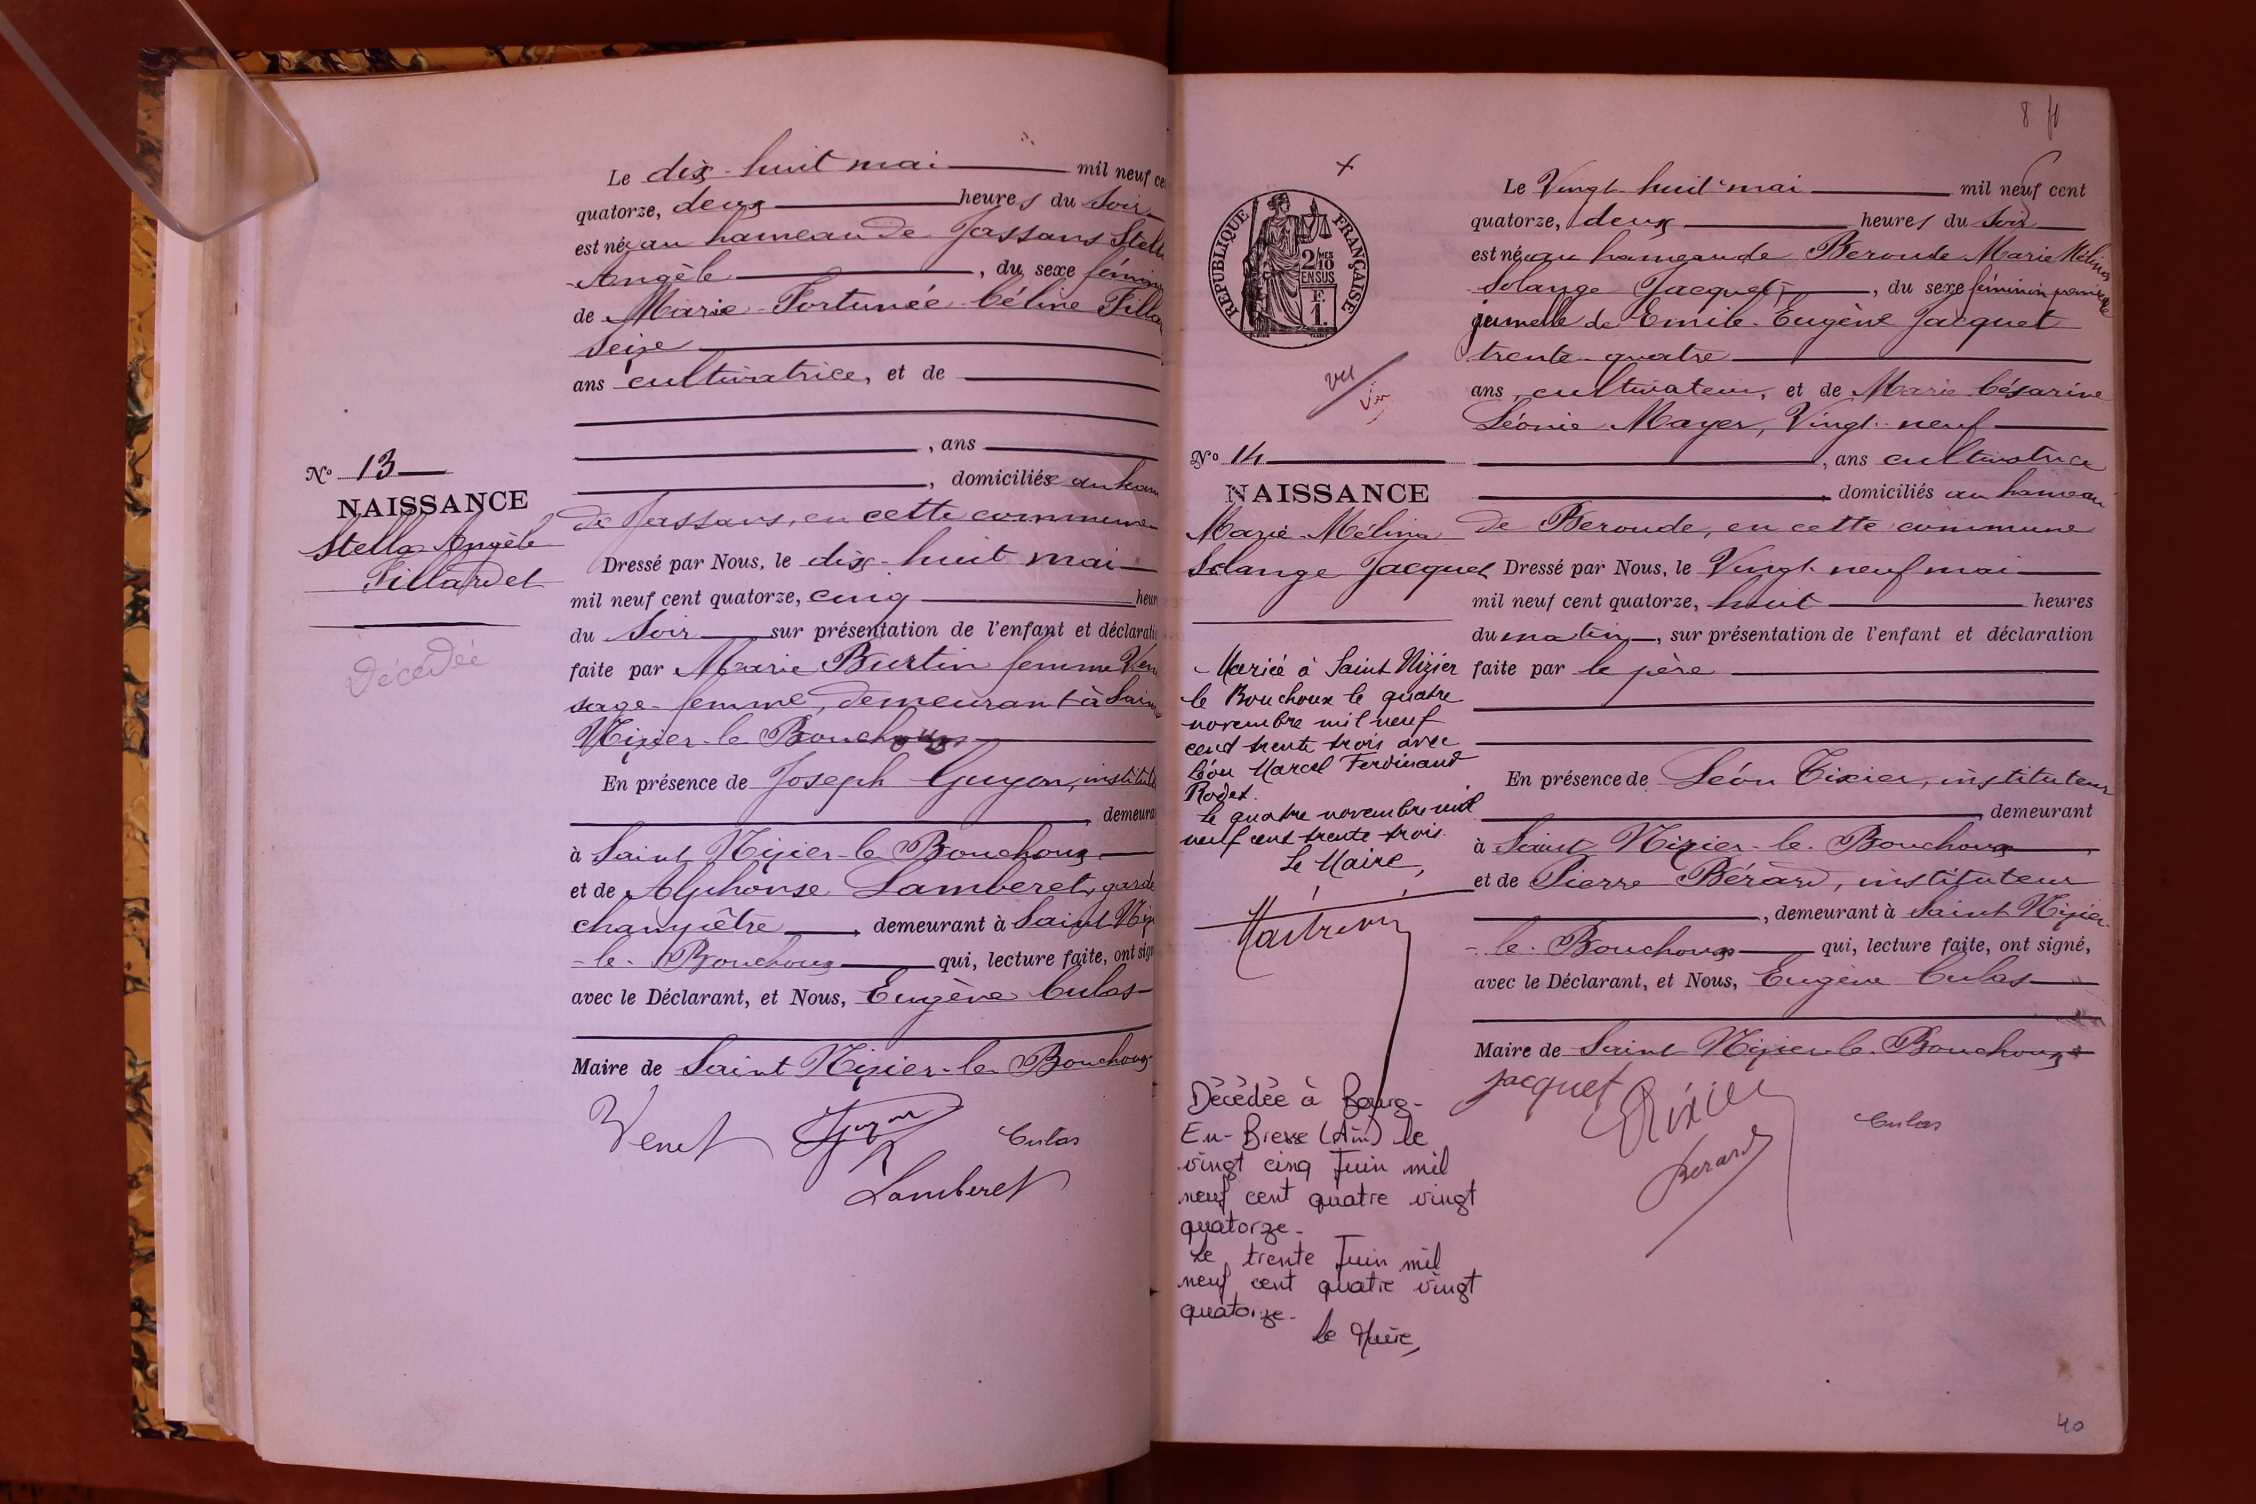 Le dix-huit mai mil neuf ce
quatorze, deux heures du soir
est née au hameau de Jassans Stell
Angèle, du sexe féminin
de Marie-Fortunée-Céline Filla
seize
ans cultivatrice, et de
, ans
N° 13
, domiciliée au ham
NAISSANCE
de Jassans, en cette commune
Stella Angèle
Fillardet
Dressé par Nous, le dix-huit mai
mil neuf cent quatorze, cinq heur
du soir sur présentation de l'enfant et déclarati
Décédée
faite par Marie Burtin femme Ven
sage-femme, demeurant à Sain
Nizier-le-Bouchoux
En présence de Joseph Guyon, institut
demeura
à Saint Nizier-le-Bouchoux
et de Alphonse Lamberet, garde
champêtre, demeurant à Saint Niz
-le-Bouchoux qui, lecture faite, ont sign
avec le Déclarant, et Nous, Eugène Culas
Maire de Saint Nizier-le-Bouchoux
Venet Guyon Culas
Lamberet
8
RÉPUBLIQUE FRANÇAISE
2/10MES
EN SUS
F.
1.
vu
Le Vingt-huit mai mil neuf cent
quatorze, deux heures du soir
est née au hameau de Beroude Marie Mélina
Solange Jacquet, du sexe féminin première
jumelle de Emile-Eugène Jacquet
trente-quatre
ans, cultivateur, et de Marie Césarine
Léonie Mayer, Vingt-neuf
N° 14
, ans cultivatrice
NAISSANCE
domiciliés au hameau
Marie-Mélina
Solange Jacquet
de Beroude, en cette commune
Dressé par Nous, le Vingt-neuf mai
mil neuf cent quatorze, huit heures
du matin, sur présentation de l'enfant et déclaration
faite par le père
Mariée à Saint Nizier
le Bouchoux le quatre
novembre mil neuf
cent trente trois avec
Léon Marcel Ferdinand
Rodet.
Le quatre novembre mil
neuf cent trente trois.
Le Maire,
En présence de Léon Tixier, instituteur
demeurant
à Saint Nizier-le-Bouchoux
et de Pierre Bérard, instituteur
, demeurant à Saint Nizier-
-le-Bouchoux qui, lecture faite, ont signé,
avec le Déclarant, et Nous, Eugène Culas
Maire de Saint Nizier-le-Bouchoux
Jacquet Tixier Culas
Bérard
Décédée à Bourg-
En-Bresse (Ain) le
vingt cinq Juin mil
neuf cent quatre vingt
quatorze-
Le trente Juin mil
neuf cent quatre vingt
quatorze-
Le Maire,
40